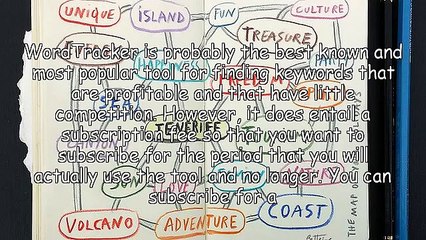 UNIQUE
ISLAND
FUN
CULTURE
TREASURE
WordTracker is probably the best known and
most popular tool for finding keywords that
are profitable and that have little
competition. However, it does entail a
subscription fee so that you want to
subscribe for the period that you will
actually use the tool and no longer. You can
subscribe for a
HAPPINESS
FREEDOM
SEA
TENERIFE
SUN
LOVE
VOLCANO
ADVENTURE
COAST
THE MAP